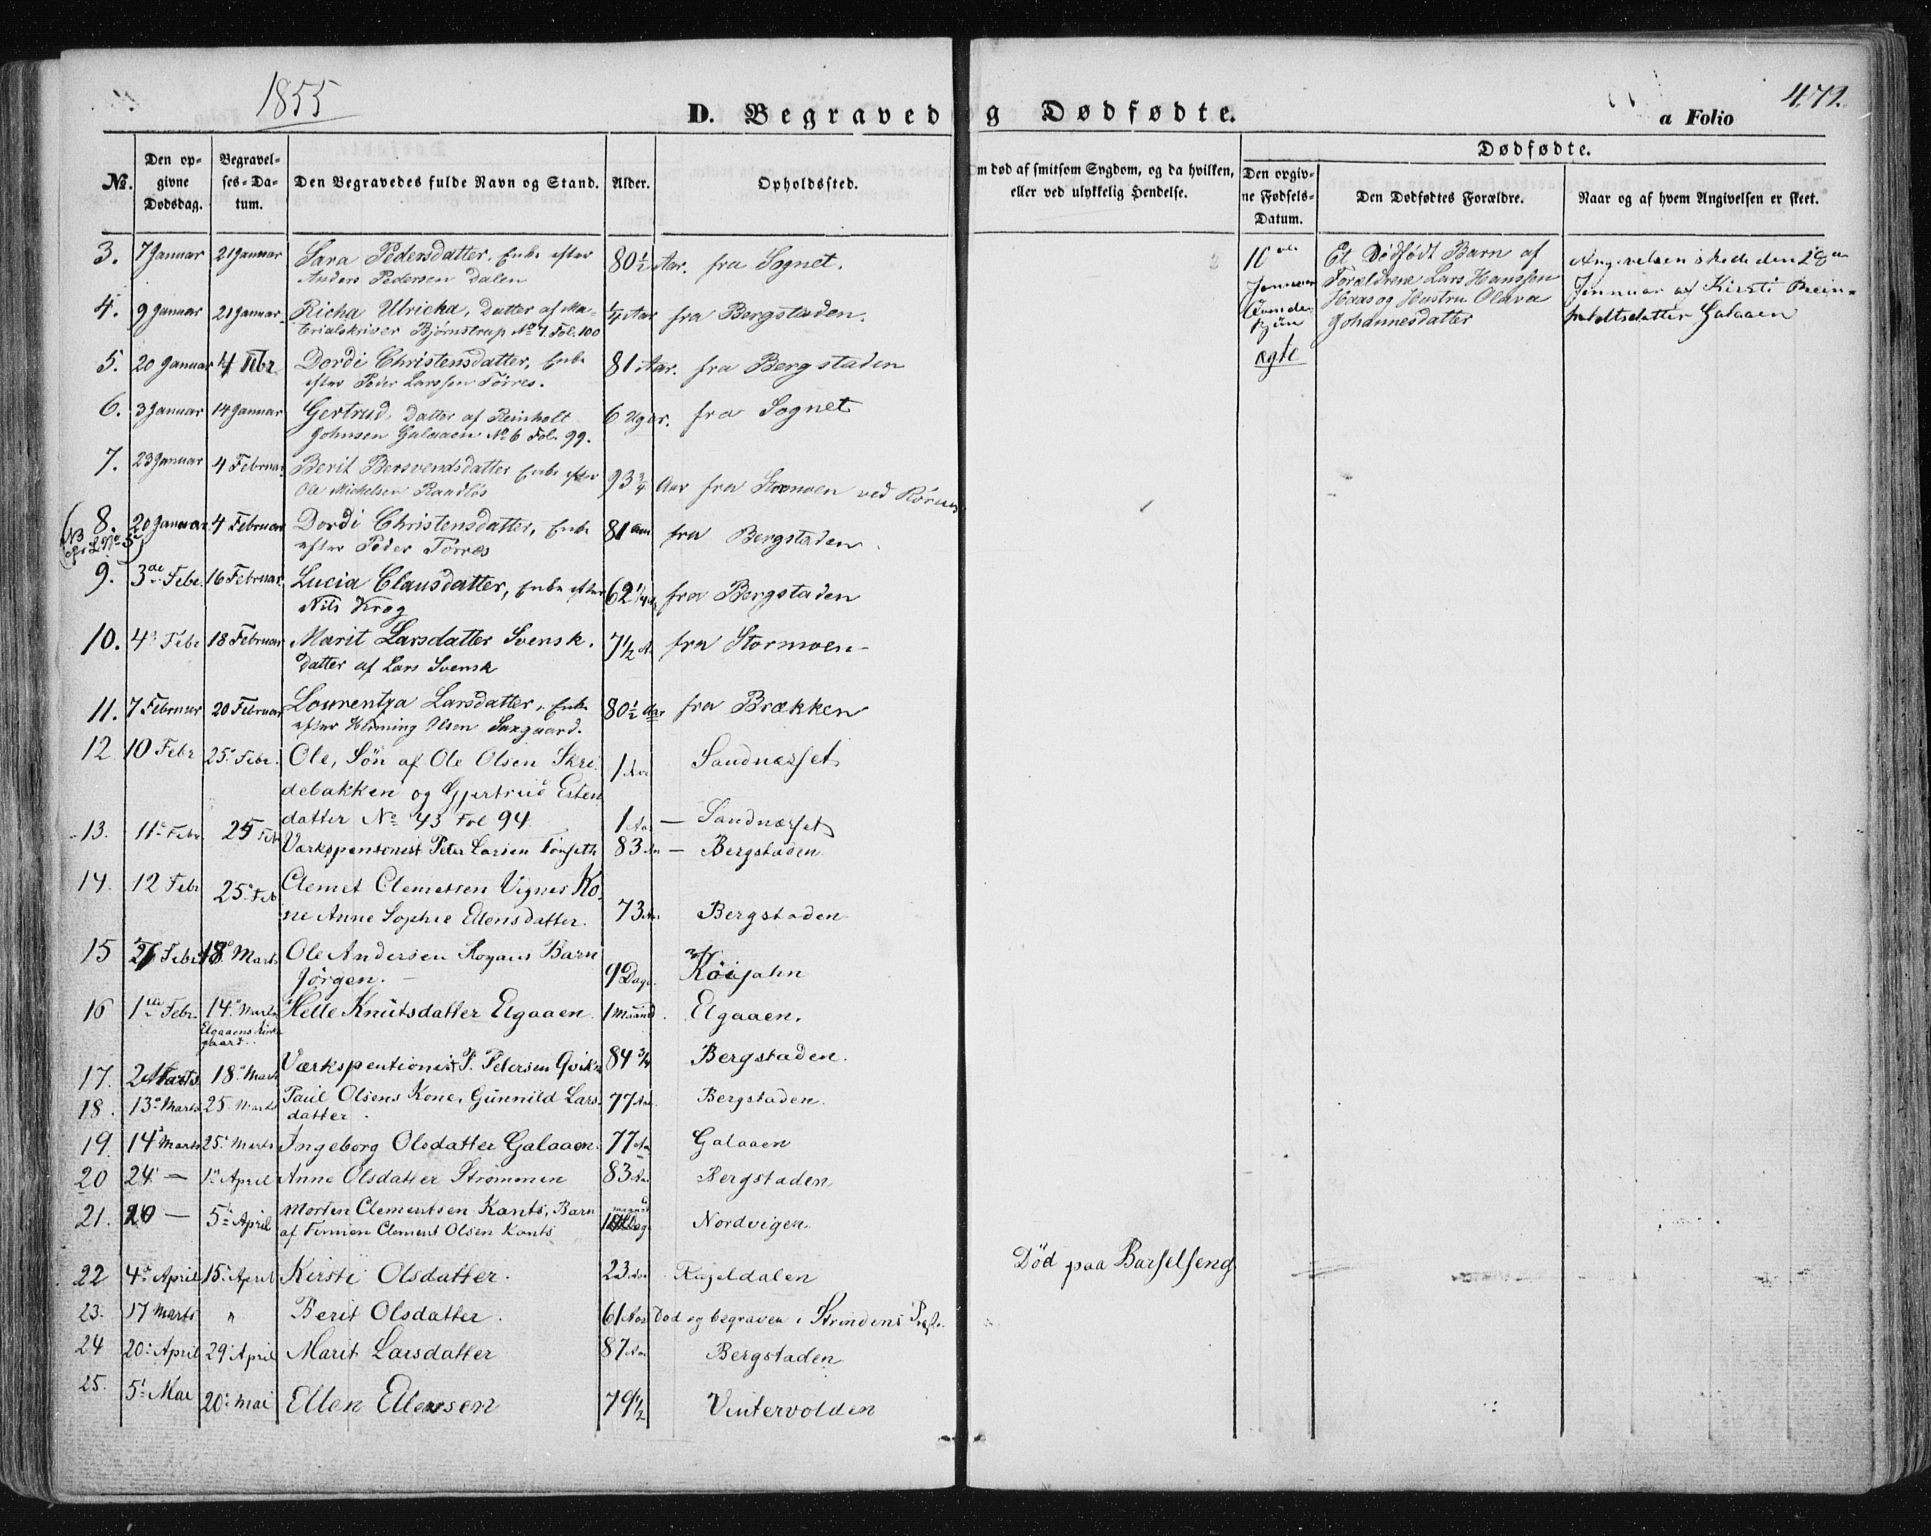 1855
472.
D. Begraved og Dødfødte.
a Folio
No.
Den opgivne Dødsdag.
Begravelses-Datum.
Den Begravedes fulde Navn og Stand.
Alder.
Opholdssted.
Om død af smitsom Sygdom, og da hvilken,
eller ved ulykkelig Hendelse.
Dødfødte.
Den opgivne Fødsels-Datum.
Den Dødfødtes Forældre.
Naar og af hvem Angivelsen er skeet.
3. 7 Januar 21 Januar Sara Pedersdatter, Enke efter 80½ Aar. fra Sognet.
Anders Pedersen Dalen
10de Januar
ægte
Et Dødfødt Barn af
Forældrene Lars Hanssen
Haas og Hustru Olava
Johannesdatter
Angivelsen skede den
Januar af Kirsti Rein-
holdtsdatter Galaaen
4. 9 Januar 21 Januar Richa Ulricha, Datter af Ma- ¼ Aar fra Bergstaden.
terialskriver Bjørnstrup No 7. Fol. 100
5. 20 Januar 4 Febr Dordi Christensdatter, Enke 81 Aar. fra Bergstaden
efter Peder Larssen Törres.
6. 3 Januar 14 Januar Gertrud, Datter af Reinholt 6 Uger. fra Sognet
Johnsen Galaaen No 6 Fol. 99.
7. 23 Januar 4 Februar Berit Bersvendsdatter Enke efter 93¾ Aar fra Stormoen ved Röraas
Ole Michelsen Raadlös
8. 20 Januar 4 Februar Dordi Christensdatter, Enke 81 Aar fra Bergstaden.
efter Peder Törres
9. 3de Febr. 16 Februar. Lucia Clausdatter, Enke efter 62¼ Aar fra Bergstaden
Nils Krog
10. 4 Febr 18 Februar Marit Larsdatter Svensk. 7½ A. fra Stormoen
Datter af Lars Svensk
11. 7 Februar 20 Februar Lourentza Larsdatter, Enke 80½ Aar fra Brækken
efter Henning Olsen Suxgaard.
12 10 Febr 25 Febr. Ole, Sön af Ole Olsen Skre 1 Aar Sandnæsset
debakken og Gjertrud Esten
datter No 43 Fol 94 1 Aar — Sandnæsset
13. 11 Febr 25 Feb Værkspensionist Peter Larsen Tönseth 83 Aar — Bergstaden
14. 12 Febr 25 Feb Clemet Clemetsen Vignes Ko
ne Anne Sophie Ellensdatter. 73 Aar Bergstaden
15 27 Febr 18 Marts Ole Andersen Moans Barn
Jörgen. 9 Dage
16 1ste Febr. 14 Marts Helle Knutsdatter Elgaaen 1 Maaned. Elgaaen.
Elgaaens Kirke
gaard.
17. 2 Marts 18 Marts Værkspentionist P. Petersen Qvikne 84¾ Bergstaden.
18. 13 Marts 25 Marts Paul Olsens Kone, Gunnild Lars 77 Aar. Bergstaden.
datter.
19. 14 Marts 25 Marts Ingeborg Olsdatter Galaaen. 77 Aar Galaaen
20 24 — 1 April Anne Olsdatter Strömmen 83 Aar Bergstaden
21. 20 — 5 April Morten Clementsen Kants, Barn Nordvigen
af Clement Olsen Kants
22 4 April 15 April Kirsti Olsdatter. 23 Aar Rugeldalen Död paa Barselseng
23. 17 Marts " Berit Olsdatter. 61 Aar Död og begraven i Strindens Præst.
24 20 April 29 April Marit Larsdatter 87 Aar Bergstaden
25. 5 Mai 20 Mai Ellen Ellensen 79½ Vintervolden